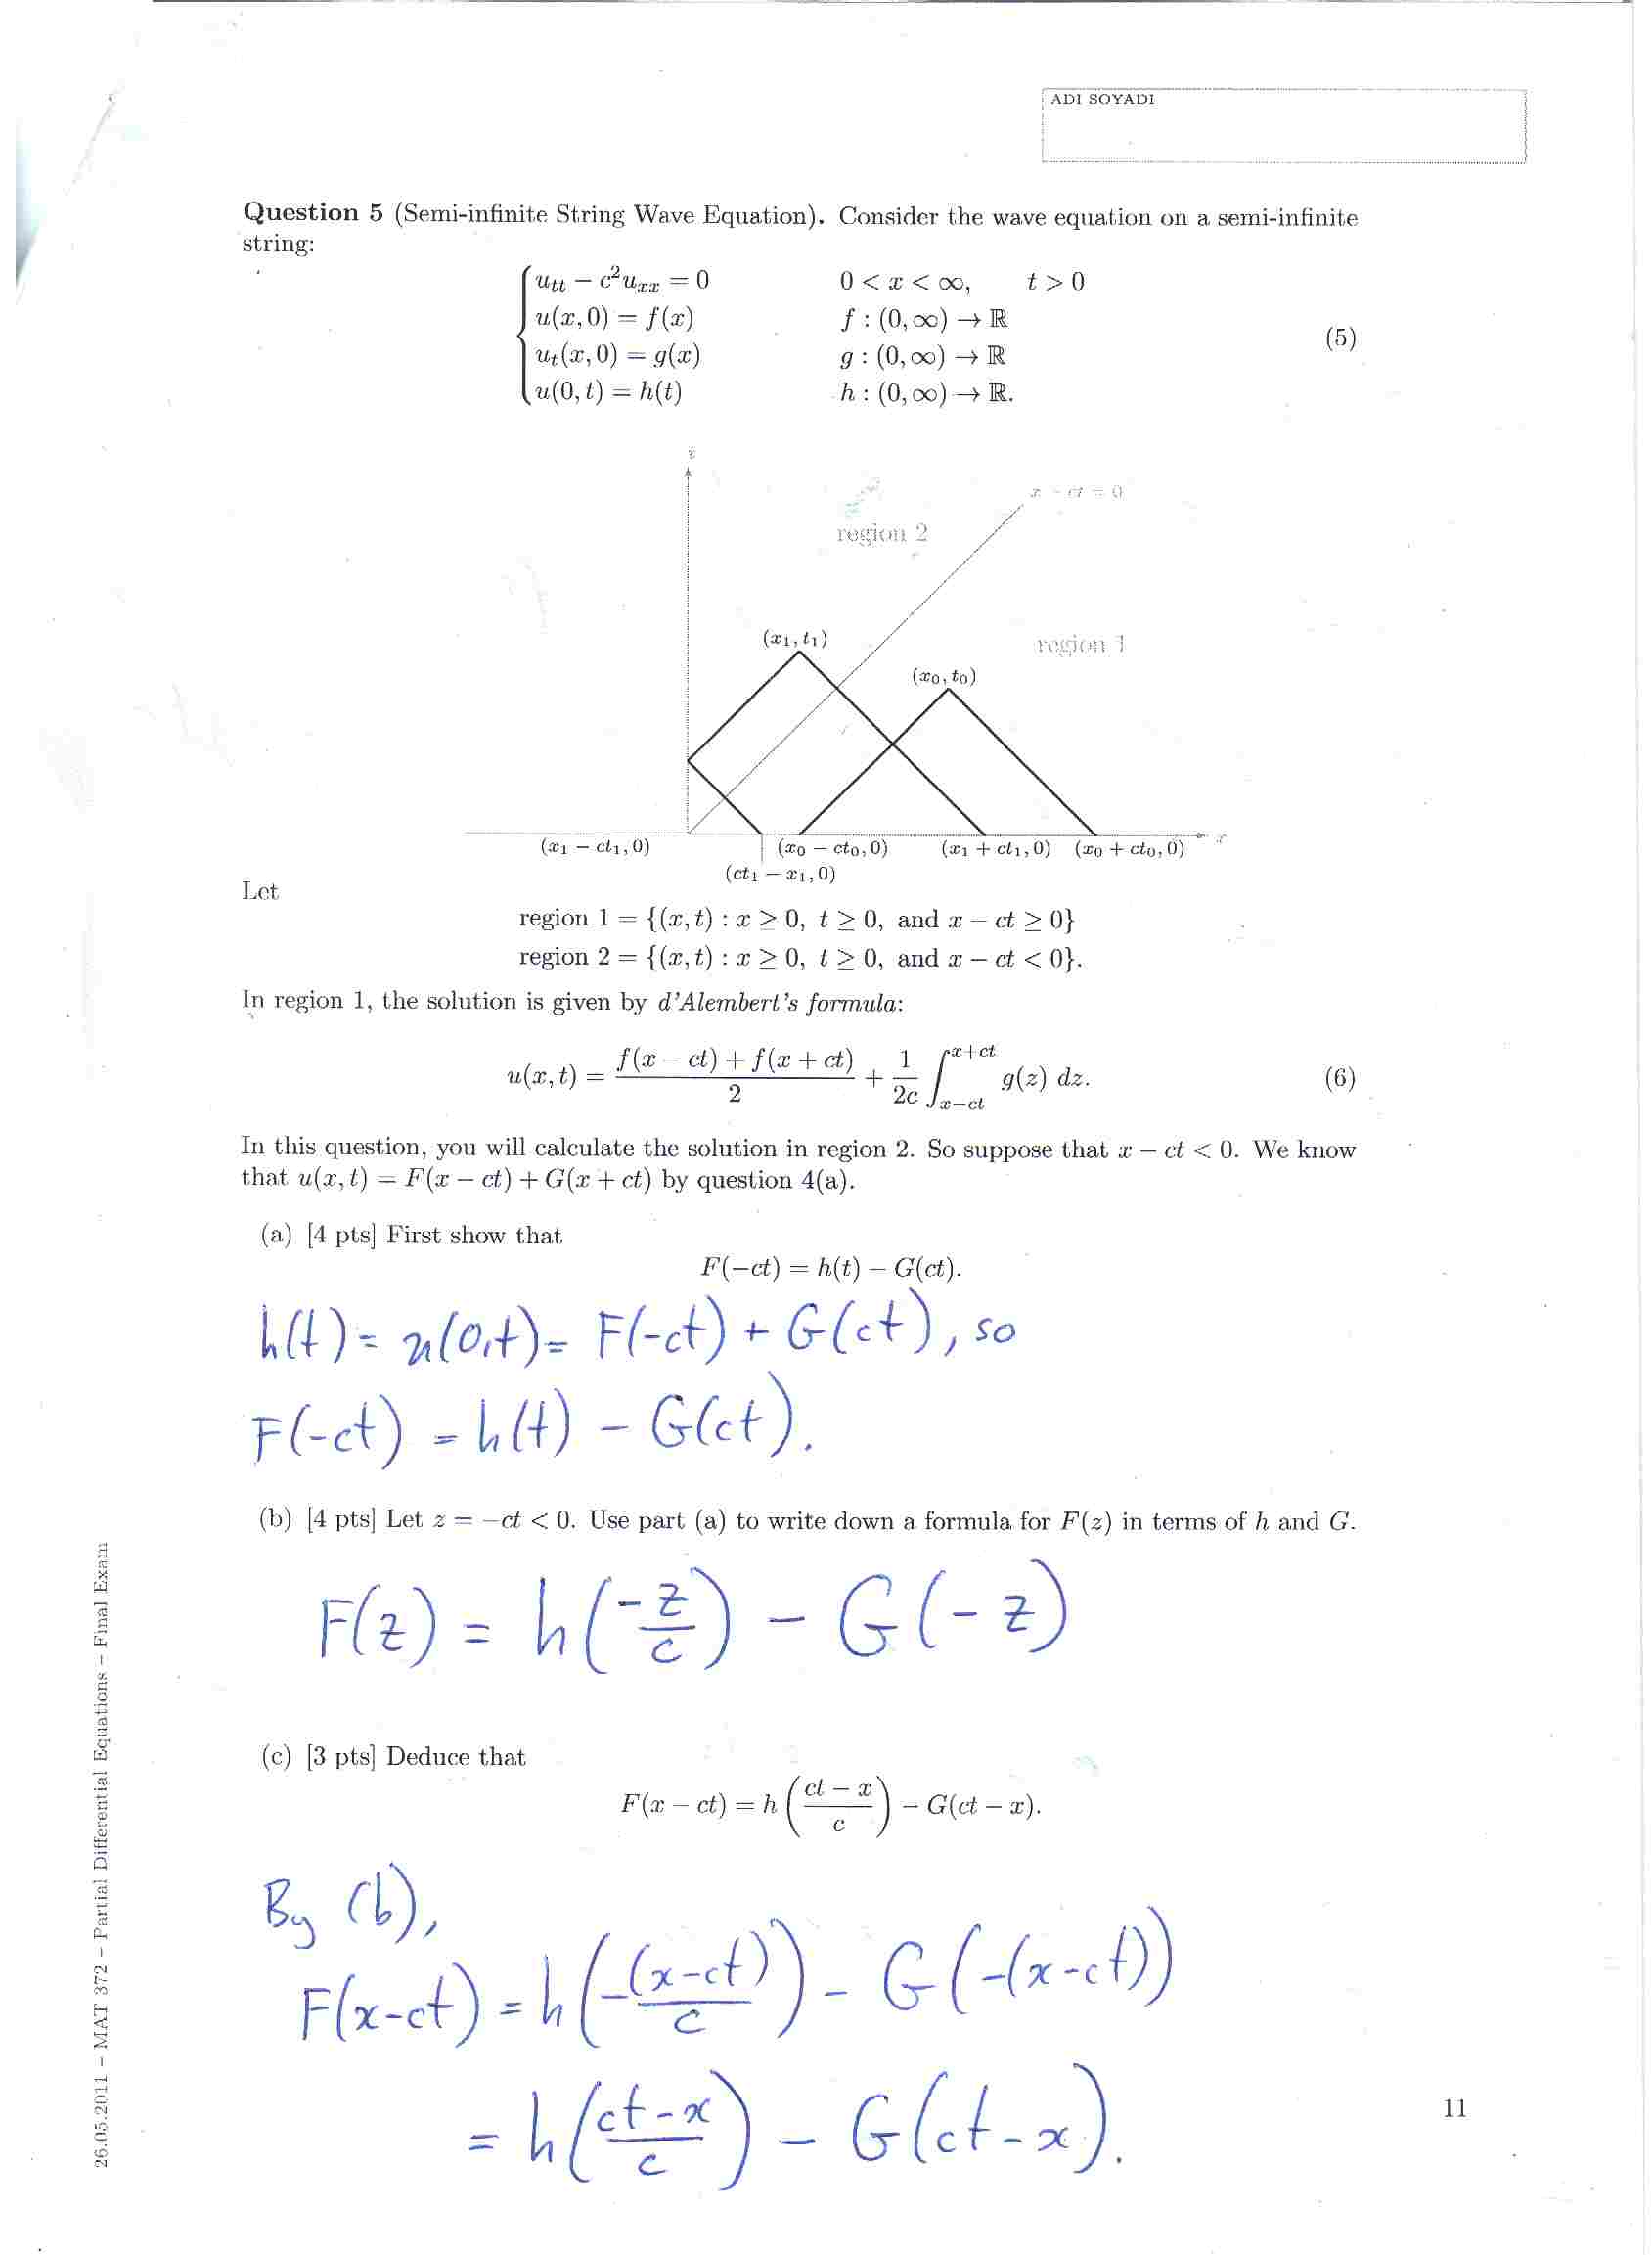 ADI SOYADI
Question 5 (Semi-infinite String Wave Equation). Consider the wave equation on a semi-infinite
string:
u_tt − c²u_xx = 0 0 < x < ∞, t > 0
u(x, 0) = f(x) f : (0, ∞) → ℝ
u_t(x, 0) = g(x) g : (0, ∞) → ℝ (5)
u(0, t) = h(t) h : (0, ∞) → ℝ.
t
x − ct = 0
region 2
(x₁, t₁)
region 1
(x₀, t₀)
(x₁ − ct₁, 0) (x₀ − ct₀, 0) (x₁ + ct₁, 0) (x₀ + ct₀, 0) x
(ct₁ − x₁, 0)
Let
region 1 = {(x, t) : x ≥ 0, t ≥ 0, and x − ct ≥ 0}
region 2 = {(x, t) : x ≥ 0, t ≥ 0, and x − ct < 0}.
In region 1, the solution is given by d'Alembert's formula:
u(x, t) = (f(x − ct) + f(x + ct))/2 + 1/(2c) ∫_{x−ct}^{x+ct} g(z) dz. (6)
In this question, you will calculate the solution in region 2. So suppose that x − ct < 0. We know
that u(x, t) = F(x − ct) + G(x + ct) by question 4(a).
(a) [4 pts] First show that
F(−ct) = h(t) − G(ct).
h(t) = u(0,t) = F(-ct) + G(ct), so
F(-ct) = h(t) - G(ct).
(b) [4 pts] Let z = −ct < 0. Use part (a) to write down a formula for F(z) in terms of h and G.
F(z) = h(-z/c) - G(-z)
(c) [3 pts] Deduce that
F(x − ct) = h((ct − x)/c) − G(ct − x).
By (b),
F(x-ct) = h(-(x-ct)/c) - G(-(x-ct))
= h((ct-x)/c) - G(ct-x).
11
26.05.2011 – MAT 372 – Partial Differential Equations – Final Exam